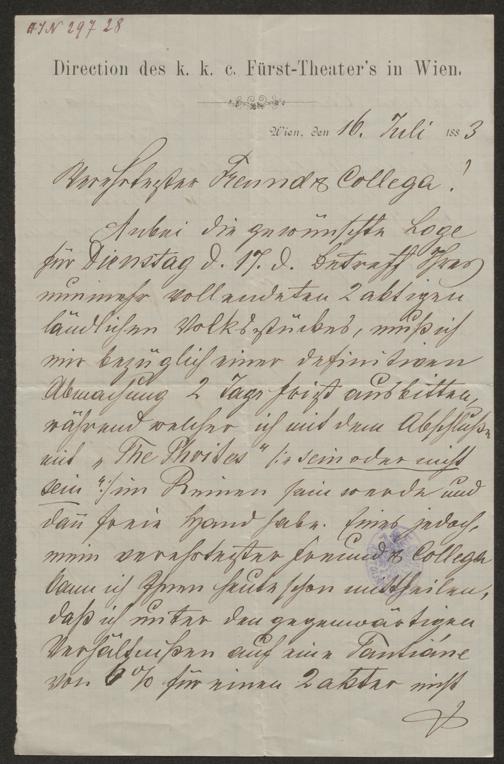 HJN 297 28
Direction des k. k. c. Fürst-Theater's in Wien.
Wien, den 16. Juli 1883
Verehrtester Freund & Collega!
Anbei die gewünschte Loge
für Dienstag d. 17. d. Betreff Ihres
nunmehr vollendeten 2aktigen
ländlichen Volksstückes, muß ich
mir bezüglich einer definitiven
Abmachung 2 Tage Frist ausbitten,
während welcher ich mit dem Abschluße
mit „The " /: sein oder nicht
sein :/ im Reinen sein werde und
dañ freie Hand habe. Eines jedoch,
mein verehrtester Freund & Collega
kann ich Ihnen heute schon mittheilen,
daß ich unter den gegenwärtigen
Verhältnißen auf eine Tantième
von 6% für einen 2akter nicht